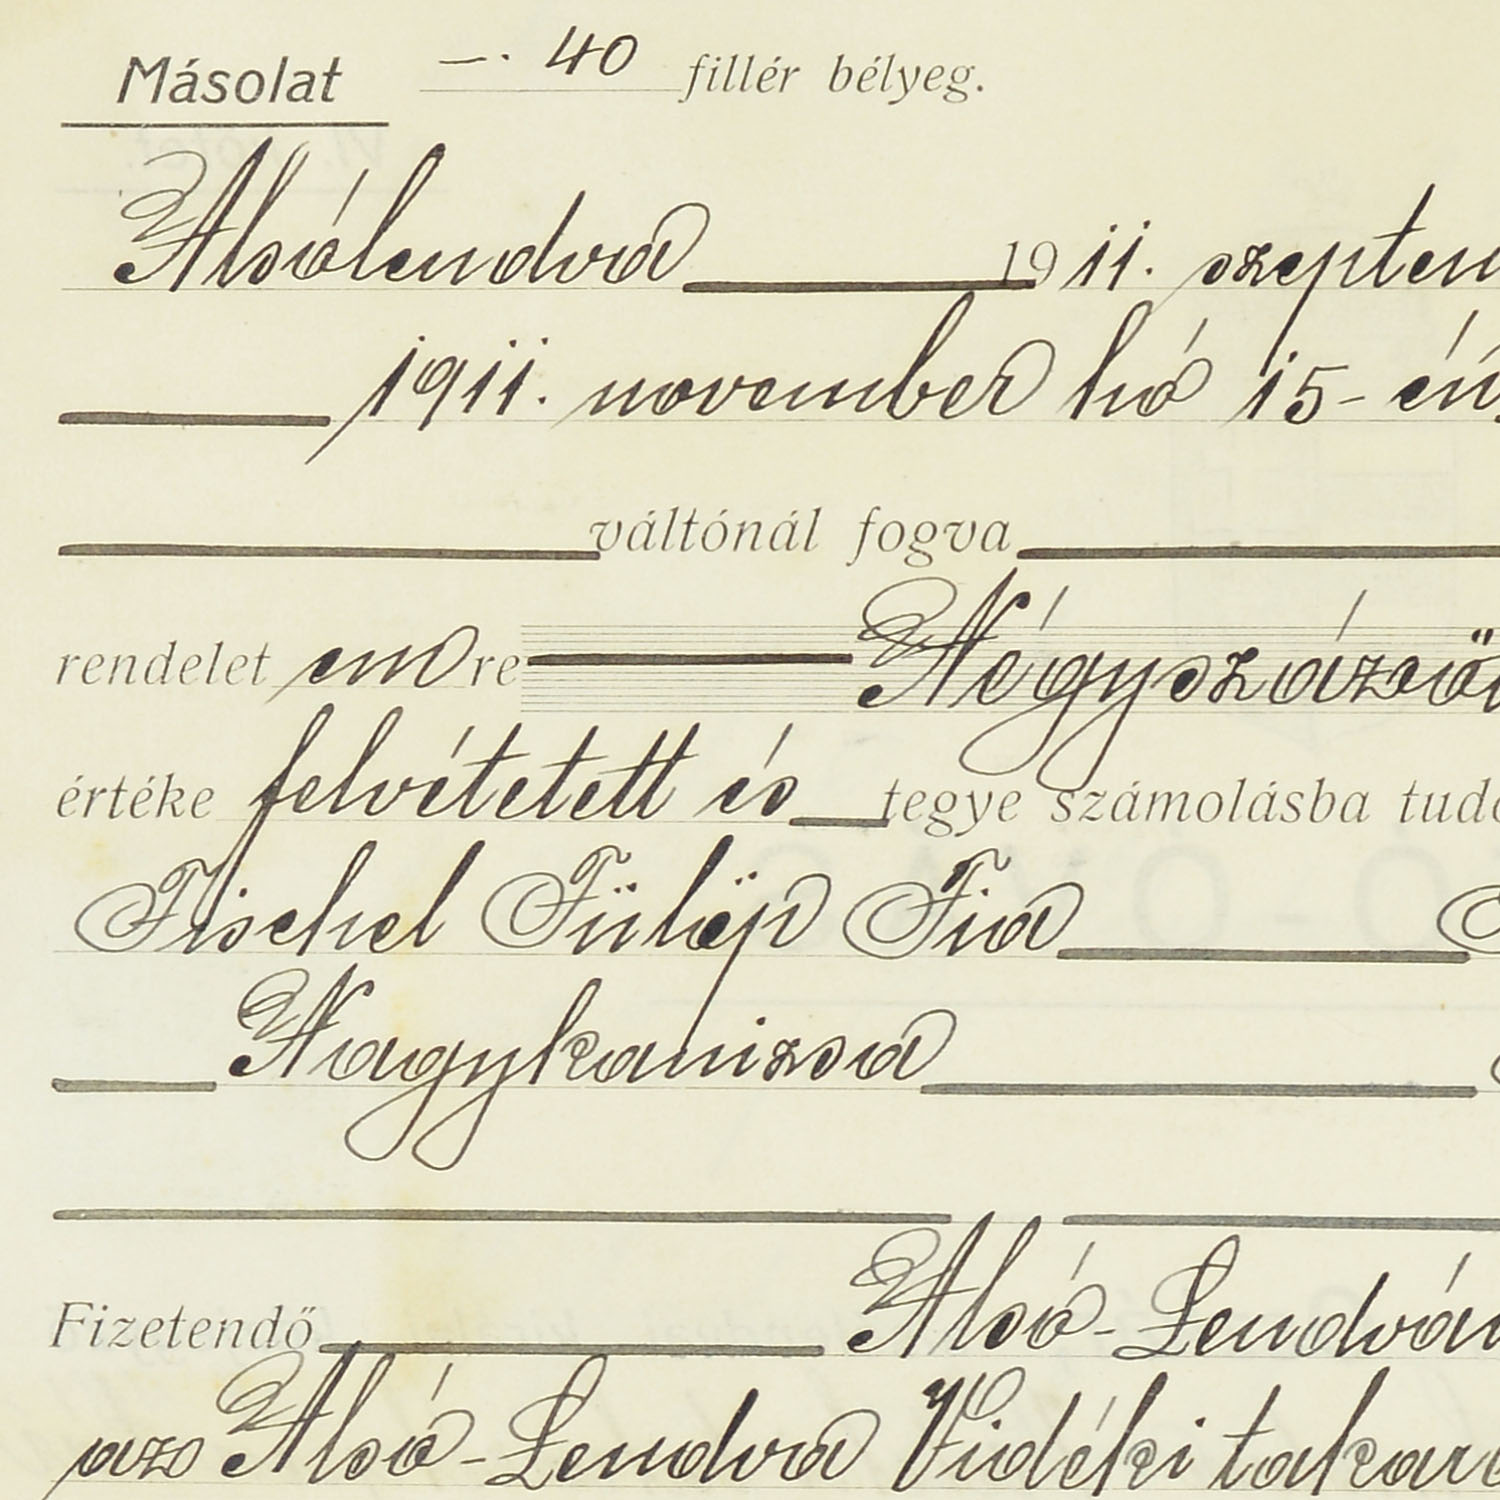 Másolat —. 40 fillér bélyeg.
Alsólendva 1911. szeptem
1911. november hó 15-én
váltónál fogva
rendelet em re Négyszázö
értéke felvétetett és tegye számolásba tud
Fischel Fülöp Fia
Nagykanizsa
Fizetendő Alsó-Lendván
az Alsó-Lendva Vidéki takaré